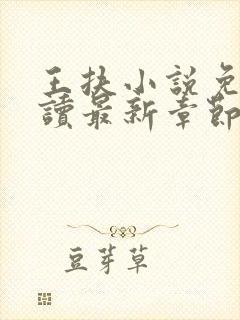 王扶小說免
讀最新章節
豆芽草